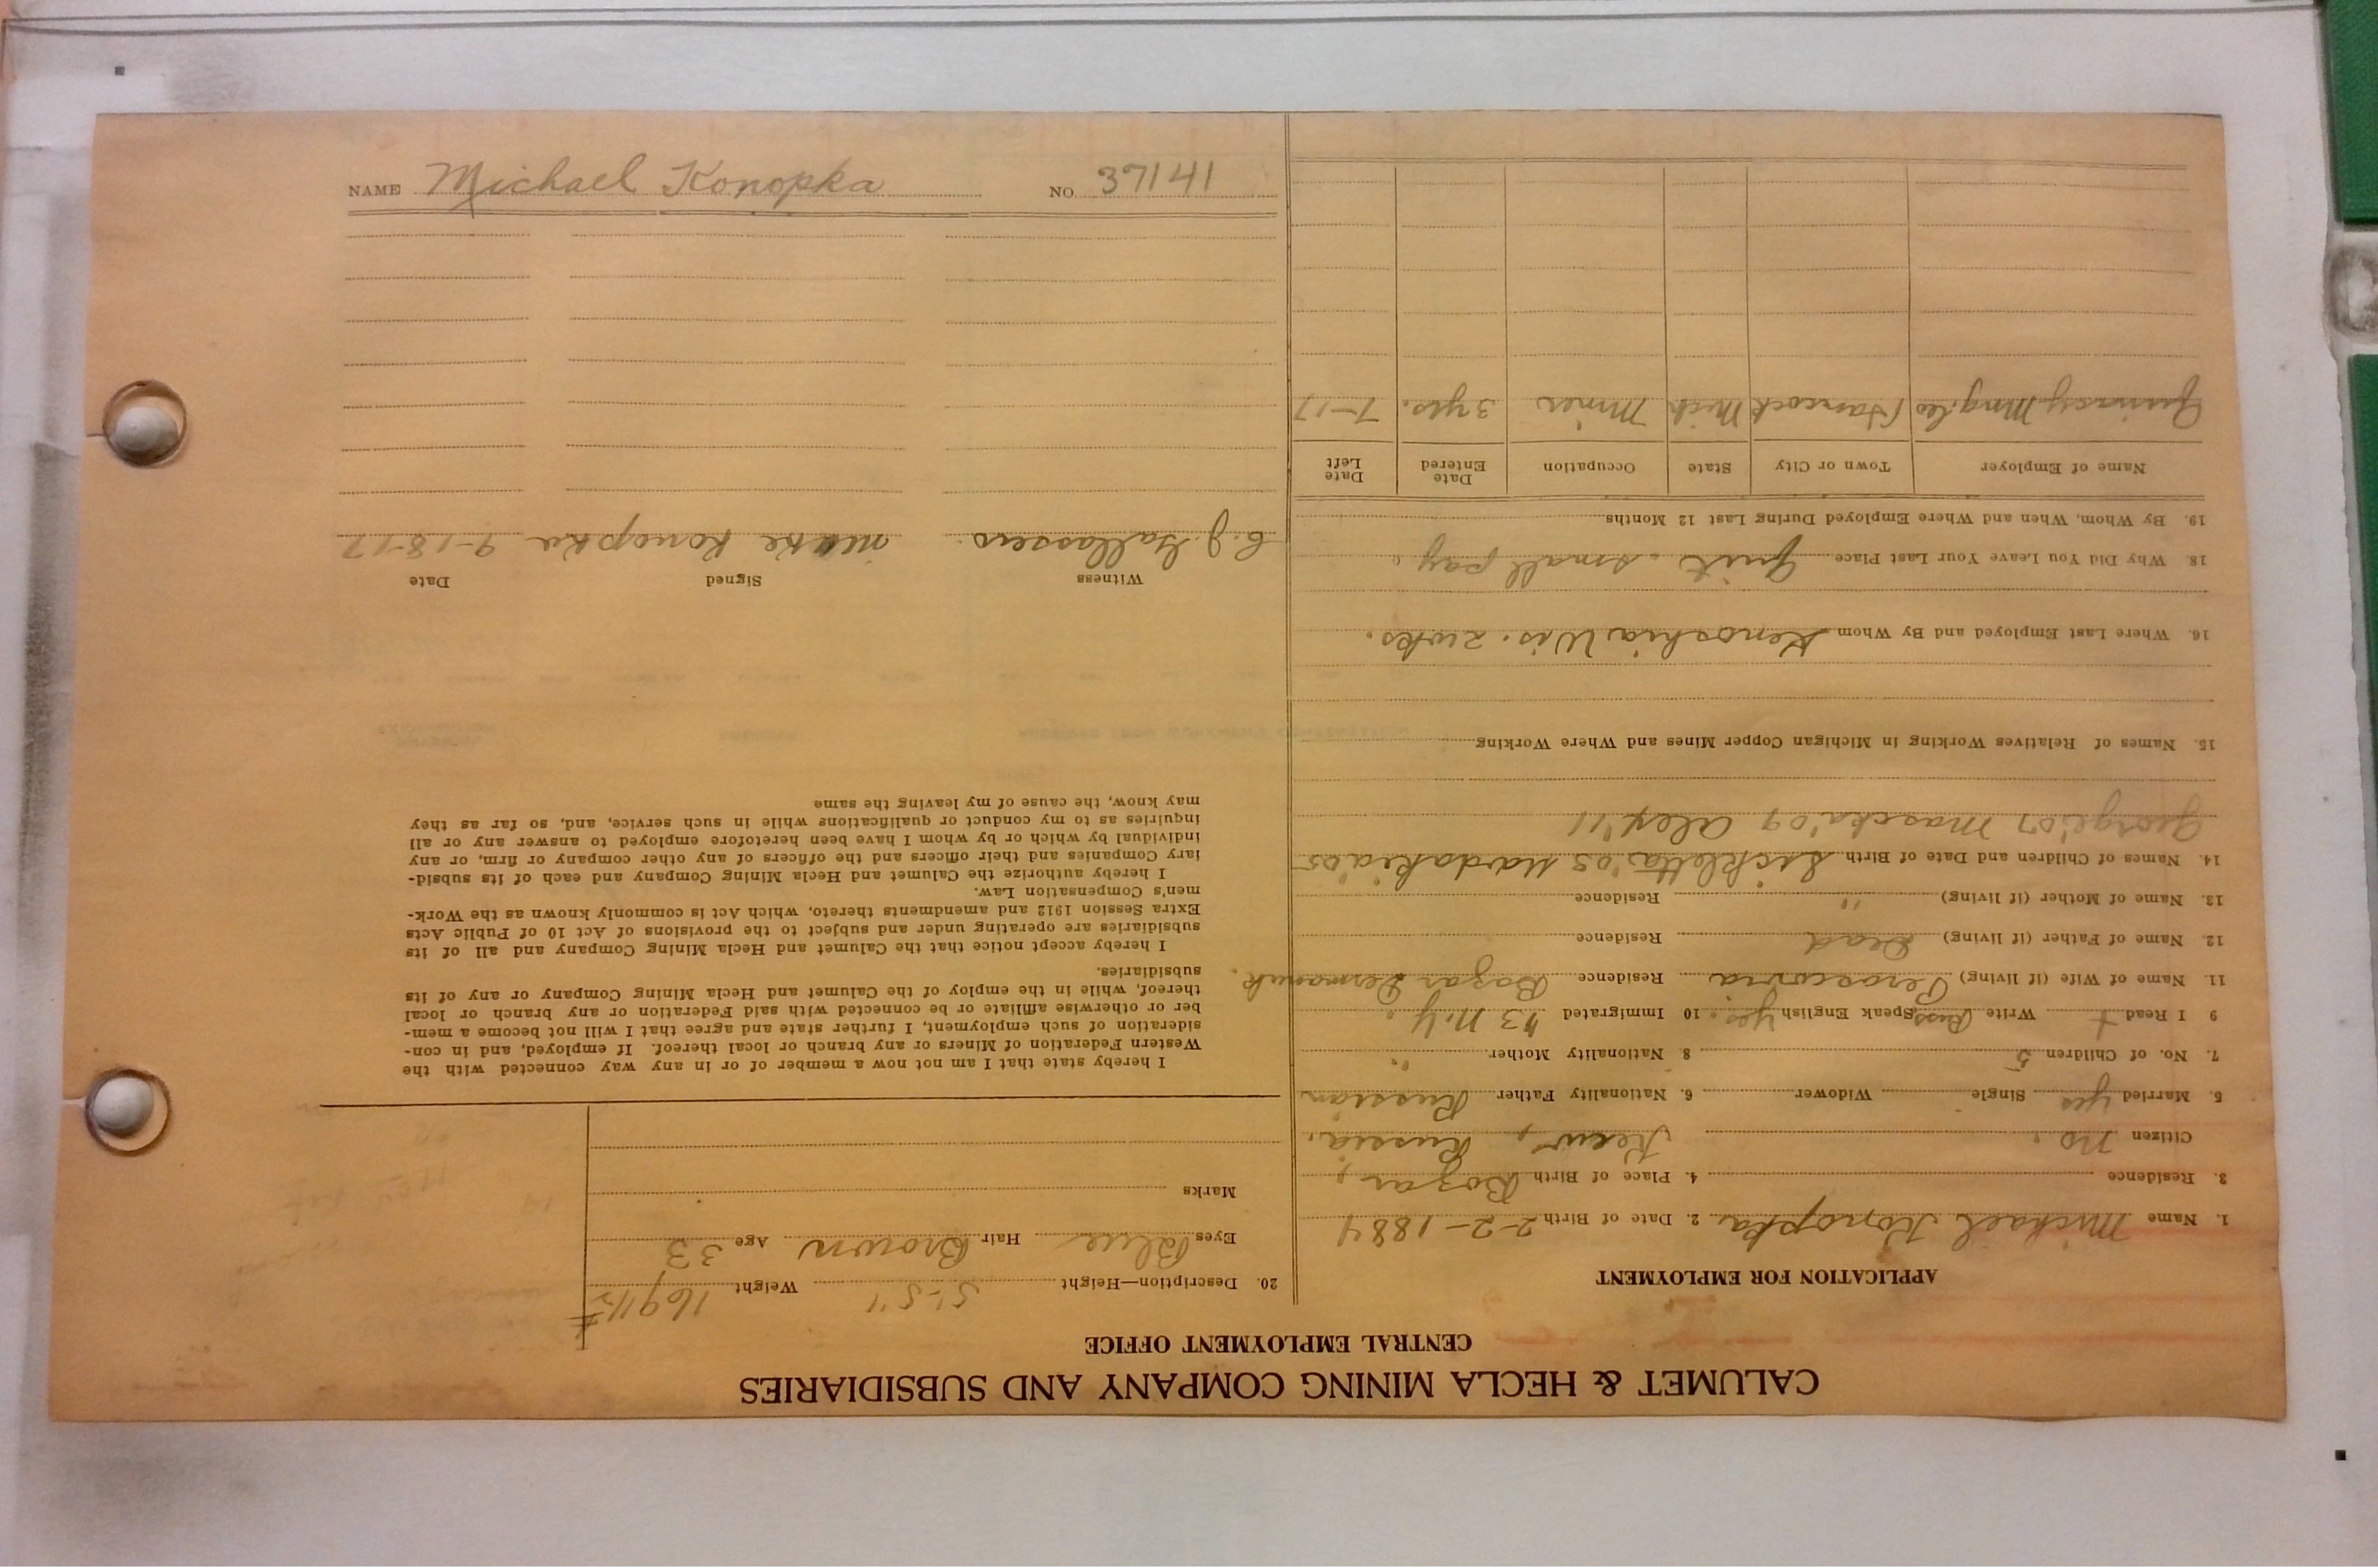 CALUMET & HECLA MINING COMPANY AND SUBSIDIARIES
CENTRAL EMPLOYMENT OFFICE
APPLICATION FOR EMPLOYMENT
1. Name Michael Konopka 2. Date of Birth 2-2-1884
3. Residence 4. Place of Birth Bozar,
Citizen no. Keew, Russia.
5. Married yes Single Widower 6. Nationality Father Russian
7. No. of Children 5 8. Nationality Mother "
9 I Read + Write Russ Speak English yes. 10 Immigrated '13 N.Y.
11. Name of Wife (if living) Residence Bozar
12. Name of Father (if living) Dead Residence
13. Name of Mother (if living) " Residence
14. Names of Children and Date of Birth '03 '05
George '07 Mascka '09 Alex '11
15. Names of Relatives Working in Michigan Copper Mines and Where Working
16. Where Last Employed and By Whom Kenoshia Wis. 2 wks.
18. Why Did You Leave Your Last Place Quit. small pay.
19. By Whom, When and Where Employed During Last 12 Months
Name of Employer Town or City State Occupation Date Entered Date Left
Quinacy Mng. Co Hancock Mich Miner 3 yrs. 7-17
20. Description—Height 5'-5" Weight 169 1/2 #
Eyes Blue Hair Brown Age 33
Marks
I hereby state that I am not now a member of or in any way connected with the
Western Federation of Miners or any branch or local thereof. If employed, and in con-
sideration of such employment, I further state and agree that I will not become a mem-
ber or otherwise affiliate or be connected with said Federation or any branch or local
thereof, while in the employ of the Calumet and Hecla Mining Company or any of its
subsidiaries.
I hereby accept notice that the Calumet and Hecla Mining Company and all of its
subsidiaries are operating under and subject to the provisions of Act 10 of Public Acts
Extra Session 1912 and amendments thereto, which Act is commonly known as the Work-
men's Compensation Law.
I hereby authorize the Calumet and Hecla Mining Company and each of its subsid-
iary Companies and their officers and the officers of any other company or firm, or any
individual by which or by whom I have been heretofore employed to answer any or all
inquiries as to my conduct or qualifications while in such service, and, so far as they
may know, the cause of my leaving the same
Witness Signed Date
C. J. Konopka 9-18-17
NAME Michael Konopka NO. 37141